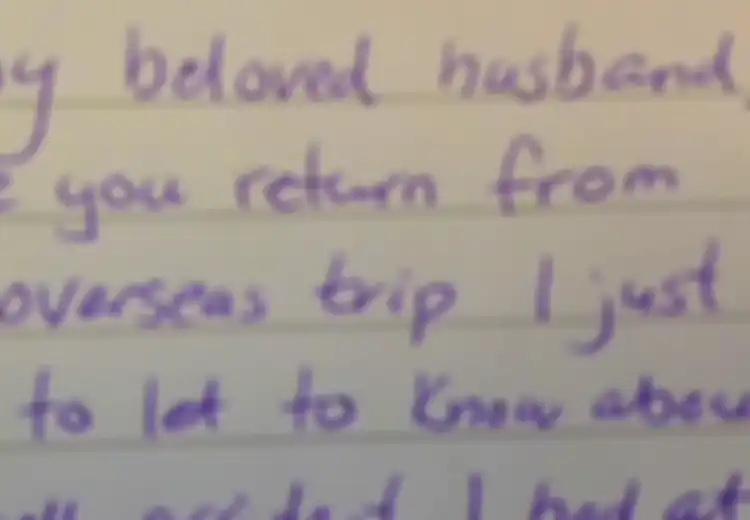 y beloved husband,
e you return from
overseas trip I just
to let to know abou
accident I had at